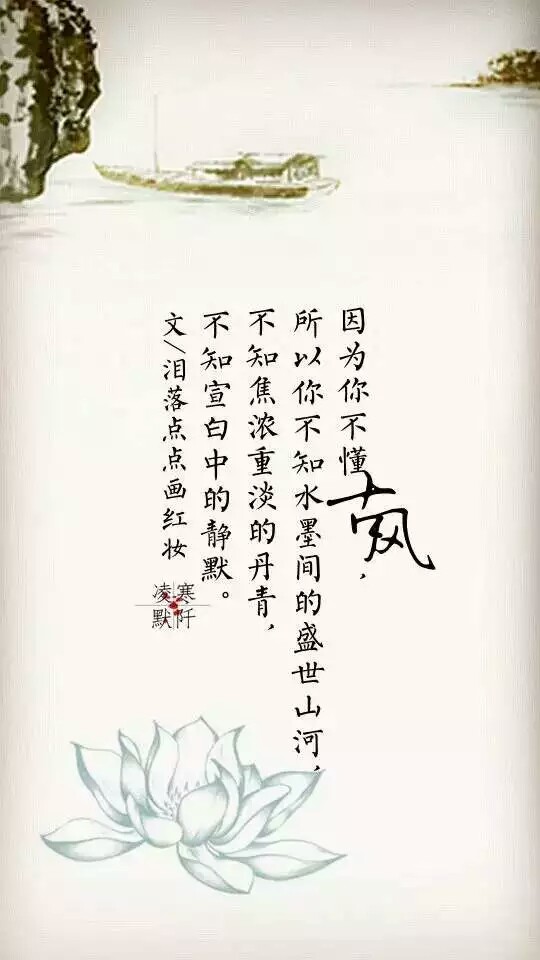 因为你不懂古风，
所以你不知水墨间的盛世山河，
不知焦浓重淡的丹青，
不知宣白中的静默。
文/泪落点点画红妆
寒阡
凌默